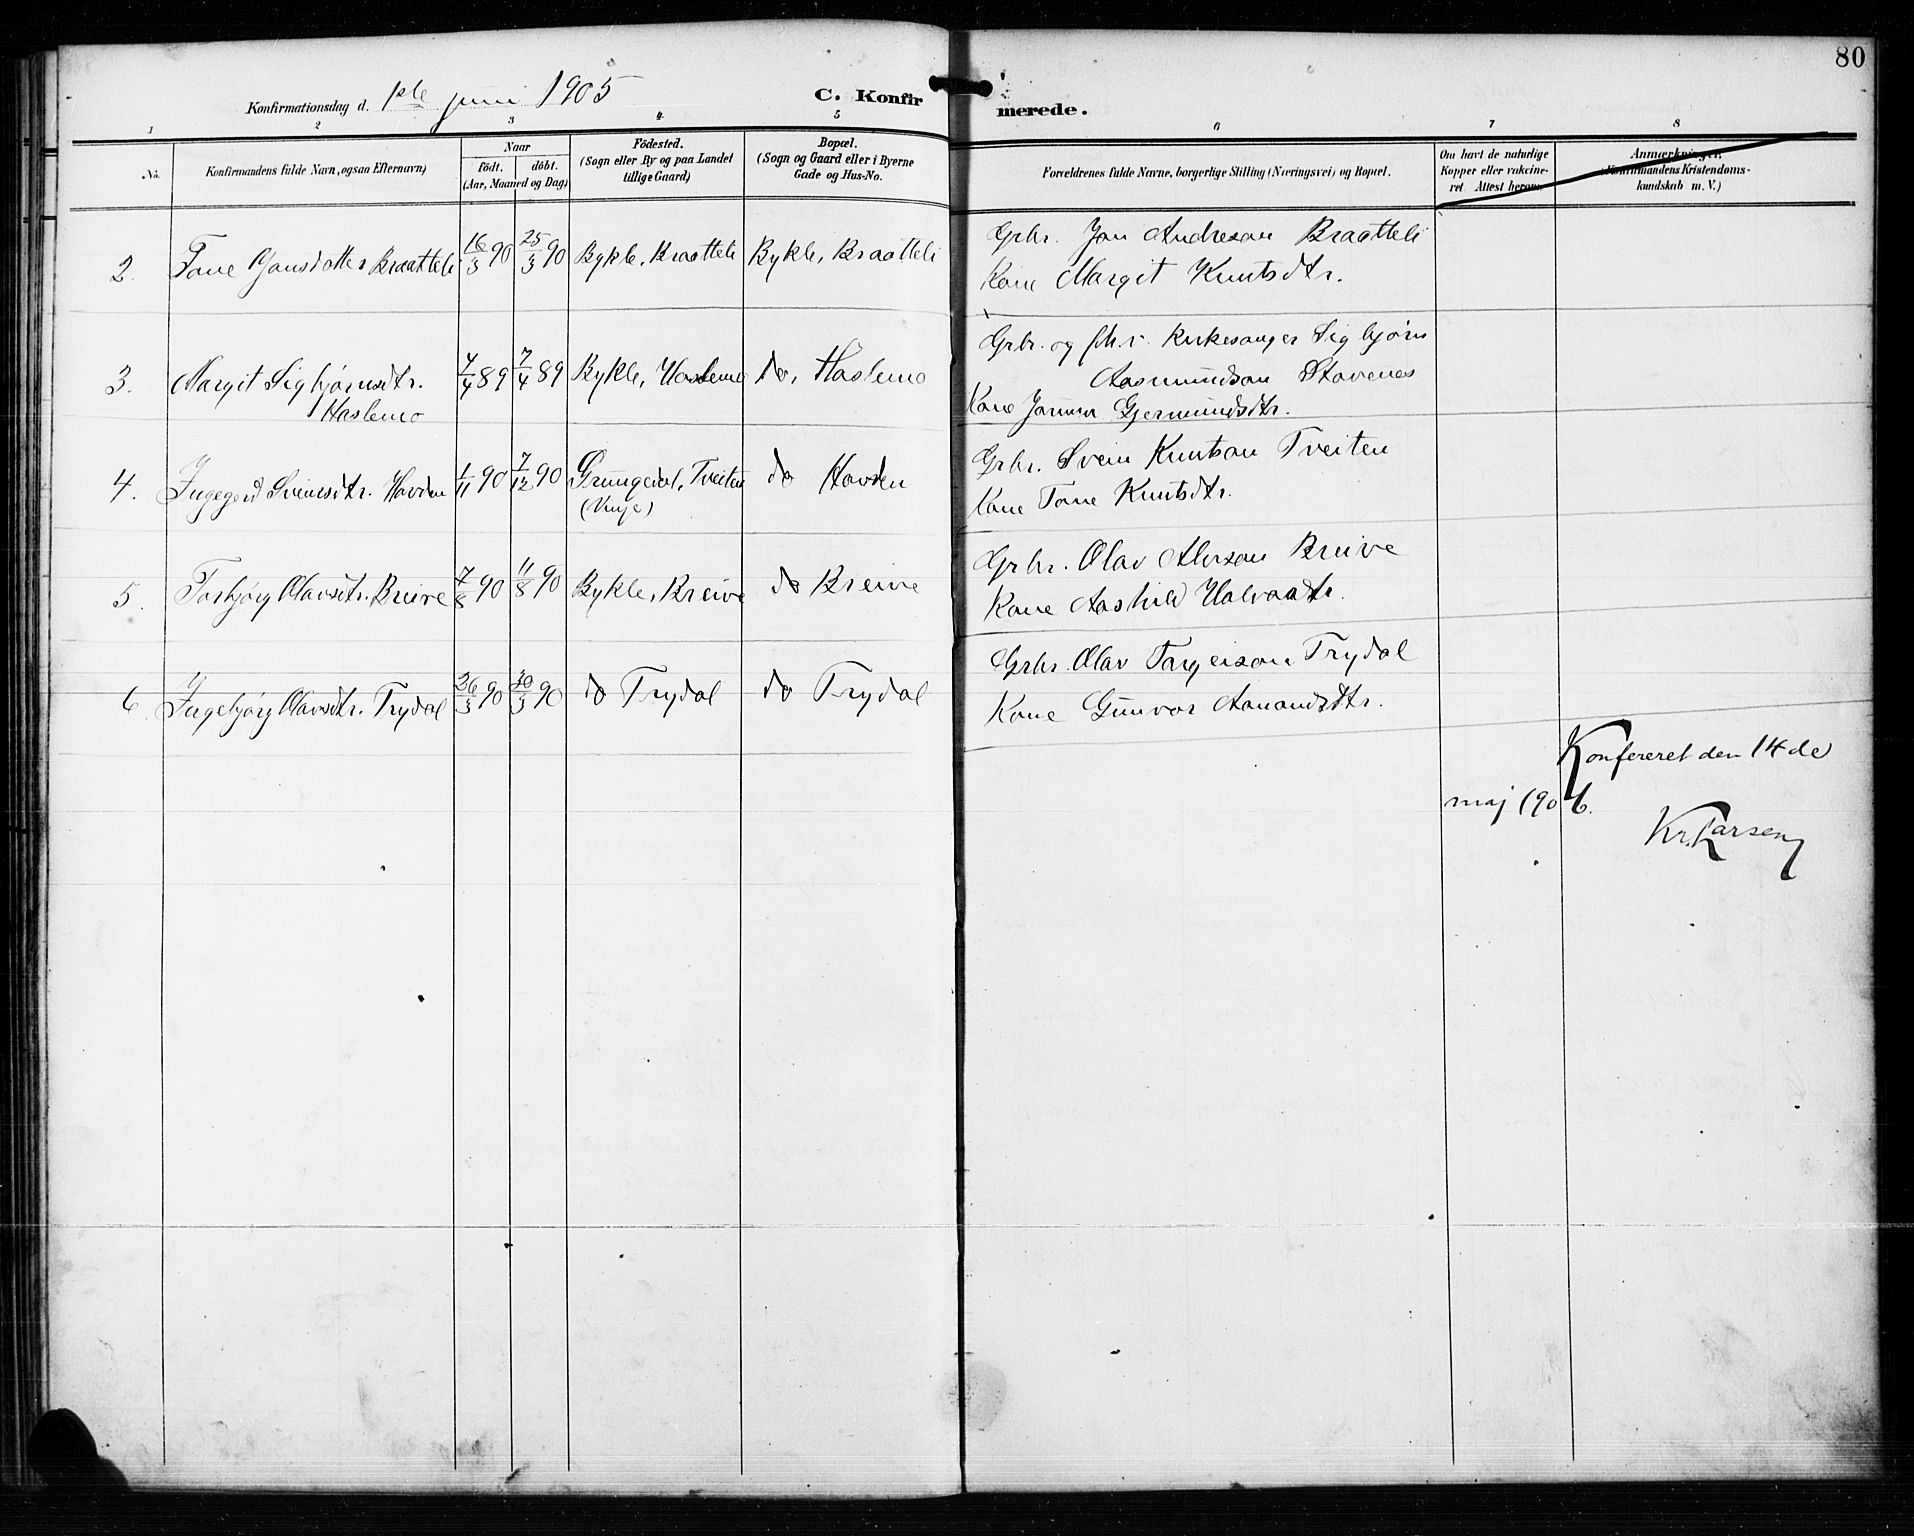 80
Konfirmationsdag d. 1ste juni 1905
C. Konfirmerede.
1 2 3 4 5 6 7 8
No.
Konfirmandens fulde Navn, ogsaa Efternavn)
Naar
födt. döbt.
(Aar, Maaned og Dag)
Födested.
(Sogn eller By og paa Landet
tillige Gaard)
Bopæl.
(Sogn og Gaard eller i Byerne
Gade og Hus-No.
Forældrenes fulde Navne, borgerlige Stilling (Næringsvei) og Bopæl.
Om havt de naturlige
Kopper eller vakcine-
ret. Attest herom.
Anmærkninger.
(Konfirmandens Kristendoms-
kundskab m. V.)
2. Tone Jonsdotter Braatteli 16/3 90 25/3 90 Bykle, Braatteli Bykle, Braatteli
Grbr. Jon Andreson Braatteli
Kone Margit Knutsdtr.
3. Margit Sigbjørnsdtr. 4/4 89 7/4 89 Bykle, Haslemo do, Haslemo
Haslemo
Grbr. og fh.v. Kirkesanger Sigbjørn
Aasmundson Stavenes
Kone Jorunn Gjermundsdtr.
4. Ingegerd Sveinsdtr. Hovden 1/11 90 7/12 90 Grungedal, Tveiten do Hovden
(Vinje)
Grbr. Svein Knutson Tveiten
Kone Tone Knutsdtr.
5. Torbjørg Olavsdtr. Breive 7/8 90 11/8 90 Bykle, Breive do Breive
Grbr. Olav Alvson Breive
Kone Aashild Halvardtr.
6. Ingebjørg Olavsdtr. Trydal 26/3 90 30/3 90 do Trydal do Trydal
Grbr. Olav Targeison Trydal
Kone Gunvor Aanundsdtr.
Konfereret den 14de
maj 1906.
Kr. Larsen